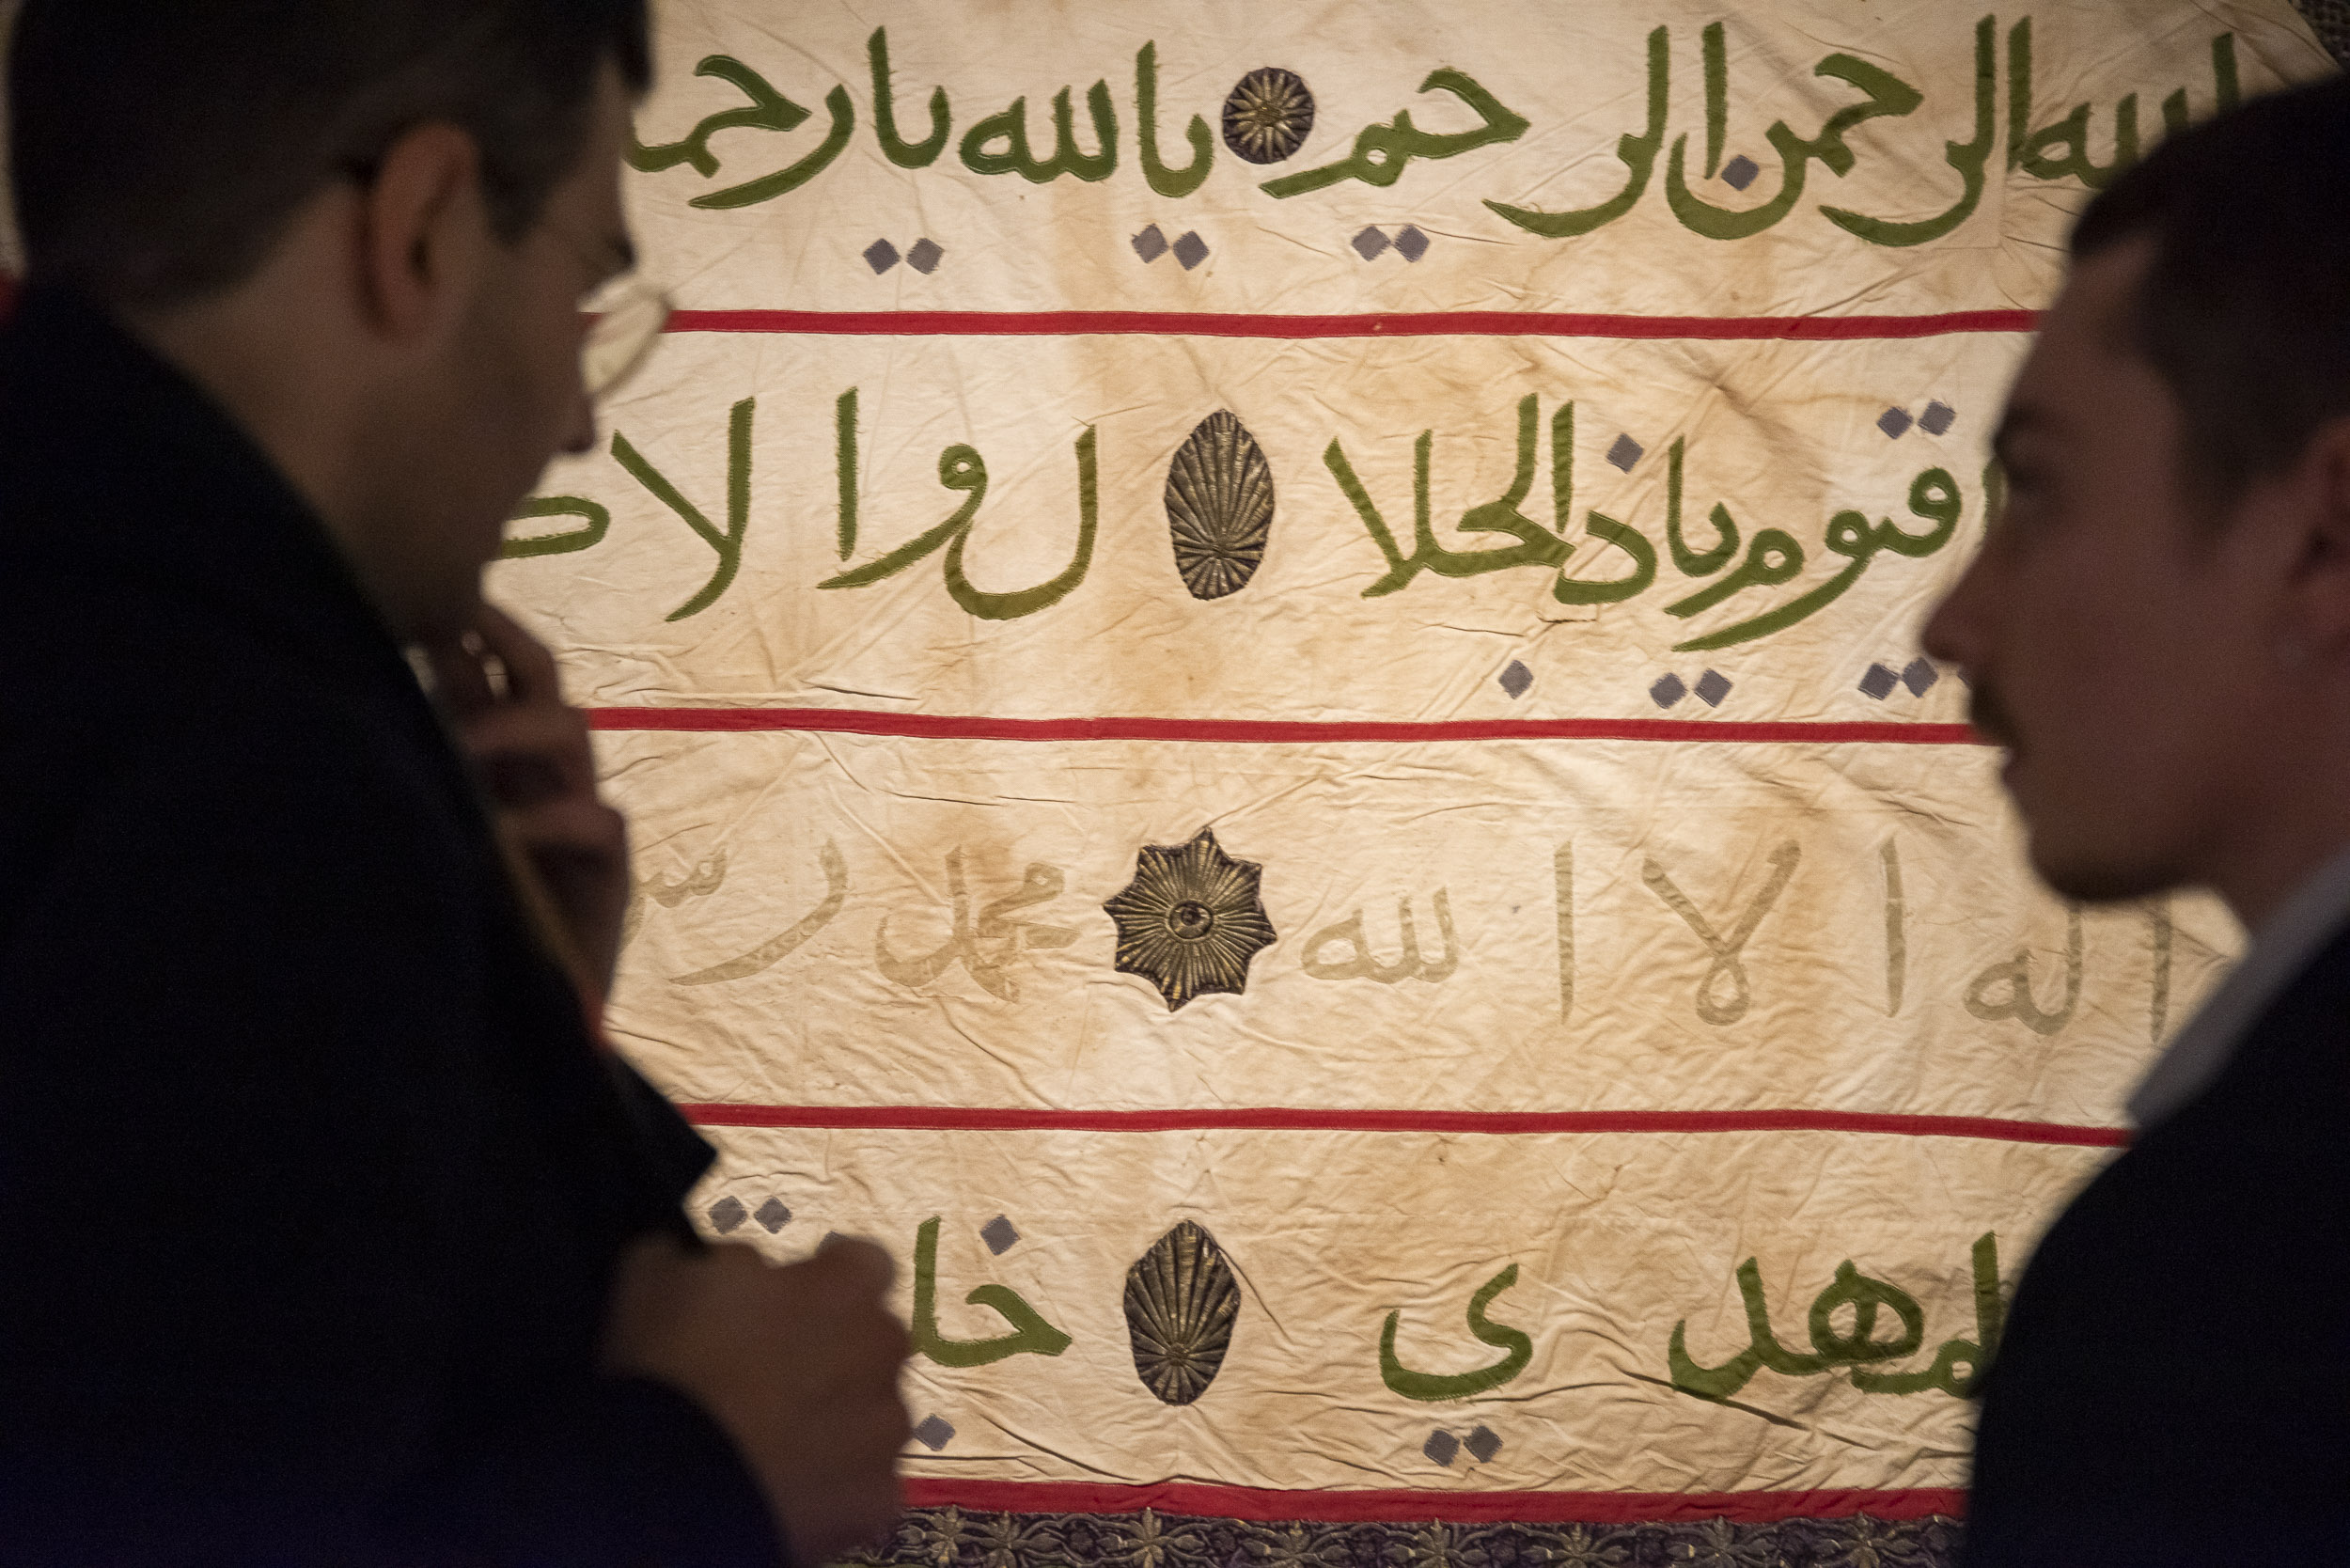 الله الرحمن الرحيم يالله يا رحم
قيوم ياذالجلال والا
اله الا الله محمد رسو
المهدي خل